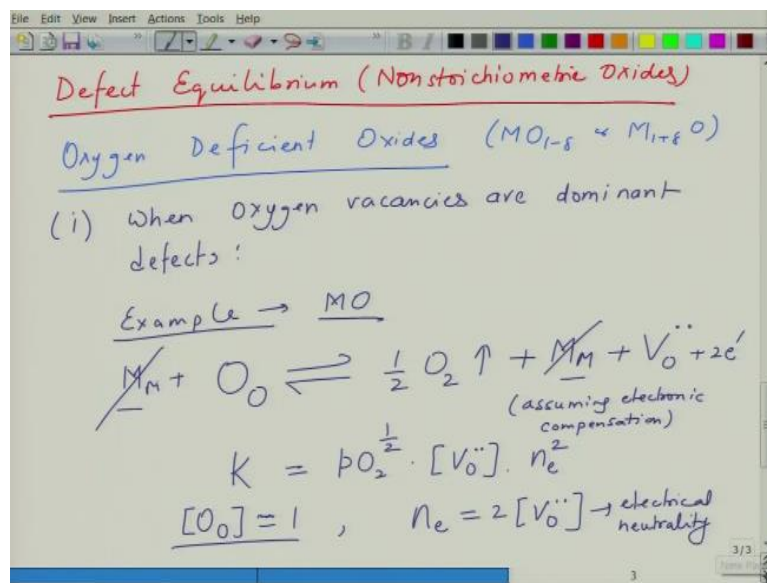 File Edit View Insert Actions Tools Help
Defect Equilibrium (Nonstoichiometric Oxides)
Oxygen Deficient Oxides (MO1-δ or M1+δ O)
(i) When oxygen vacancies are dominant
defects :
Example → MO
M_M + O_O ⇌ 1/2 O2 ↑ + M_M + V_O^•• + 2e'
(assuming electronic
compensation)
K = pO2^1/2 · [V_O^••] . n_e^2
[O_O] = 1 , n_e = 2 [V_O^••] → electrical
neutrality
3/3
3